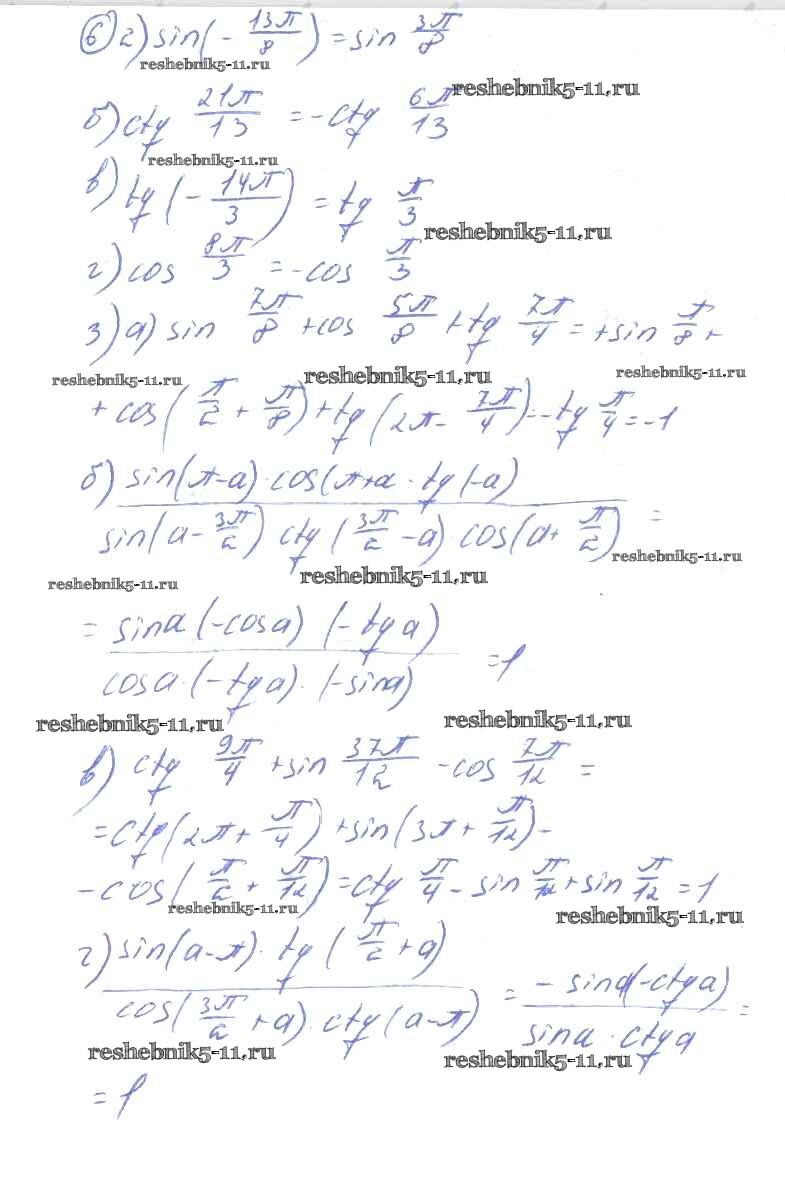 6) 2) sin(- 13π/8) = sin 3π/8
reshebnik5-11.ru
reshebnik5-11.ru
б) ctg 21π/13 = -ctg 6π/13
reshebnik5-11.ru
в) tg(- 14π/3) = tg π/3
reshebnik5-11.ru
г) cos 8π/3 = -cos π/3
3) а) sin 7π/8 + cos 5π/8 + tg 7π/4 = + sin π/8 +
reshebnik5-11.ru reshebnik5-11.ru reshebnik5-11.ru
+ cos(π/2 + π/8) + tg(2π - 7π/4) = -tg π/4 = -1
б) sin(π-a) · cos(π+a · tg(-a) / sin(a - 3π/2) ctg(3π/2 - a) · cos(a + π/2) =
reshebnik5-11.ru
reshebnik5-11.ru reshebnik5-11.ru
= sina (-cosa) (-tga) / cosa · (-tga) · (-sina) = 1
reshebnik5-11.ru reshebnik5-11.ru
в) ctg 9π/4 + sin 37π/12 - cos 7π/12 =
= ctg(2π + π/4) + sin(3π + π/12) -
- cos(π/2 + π/12) = ctg π/4 - sin π/12 + sin π/12 = 1
reshebnik5-11.ru reshebnik5-11.ru
г) sin(a-π) · tg(π/2 + a) / cos(3π/2 + a) · ctg(a-π) = - sina(-ctga) / sina · ctga =
reshebnik5-11.ru reshebnik5-11.ru
= 1